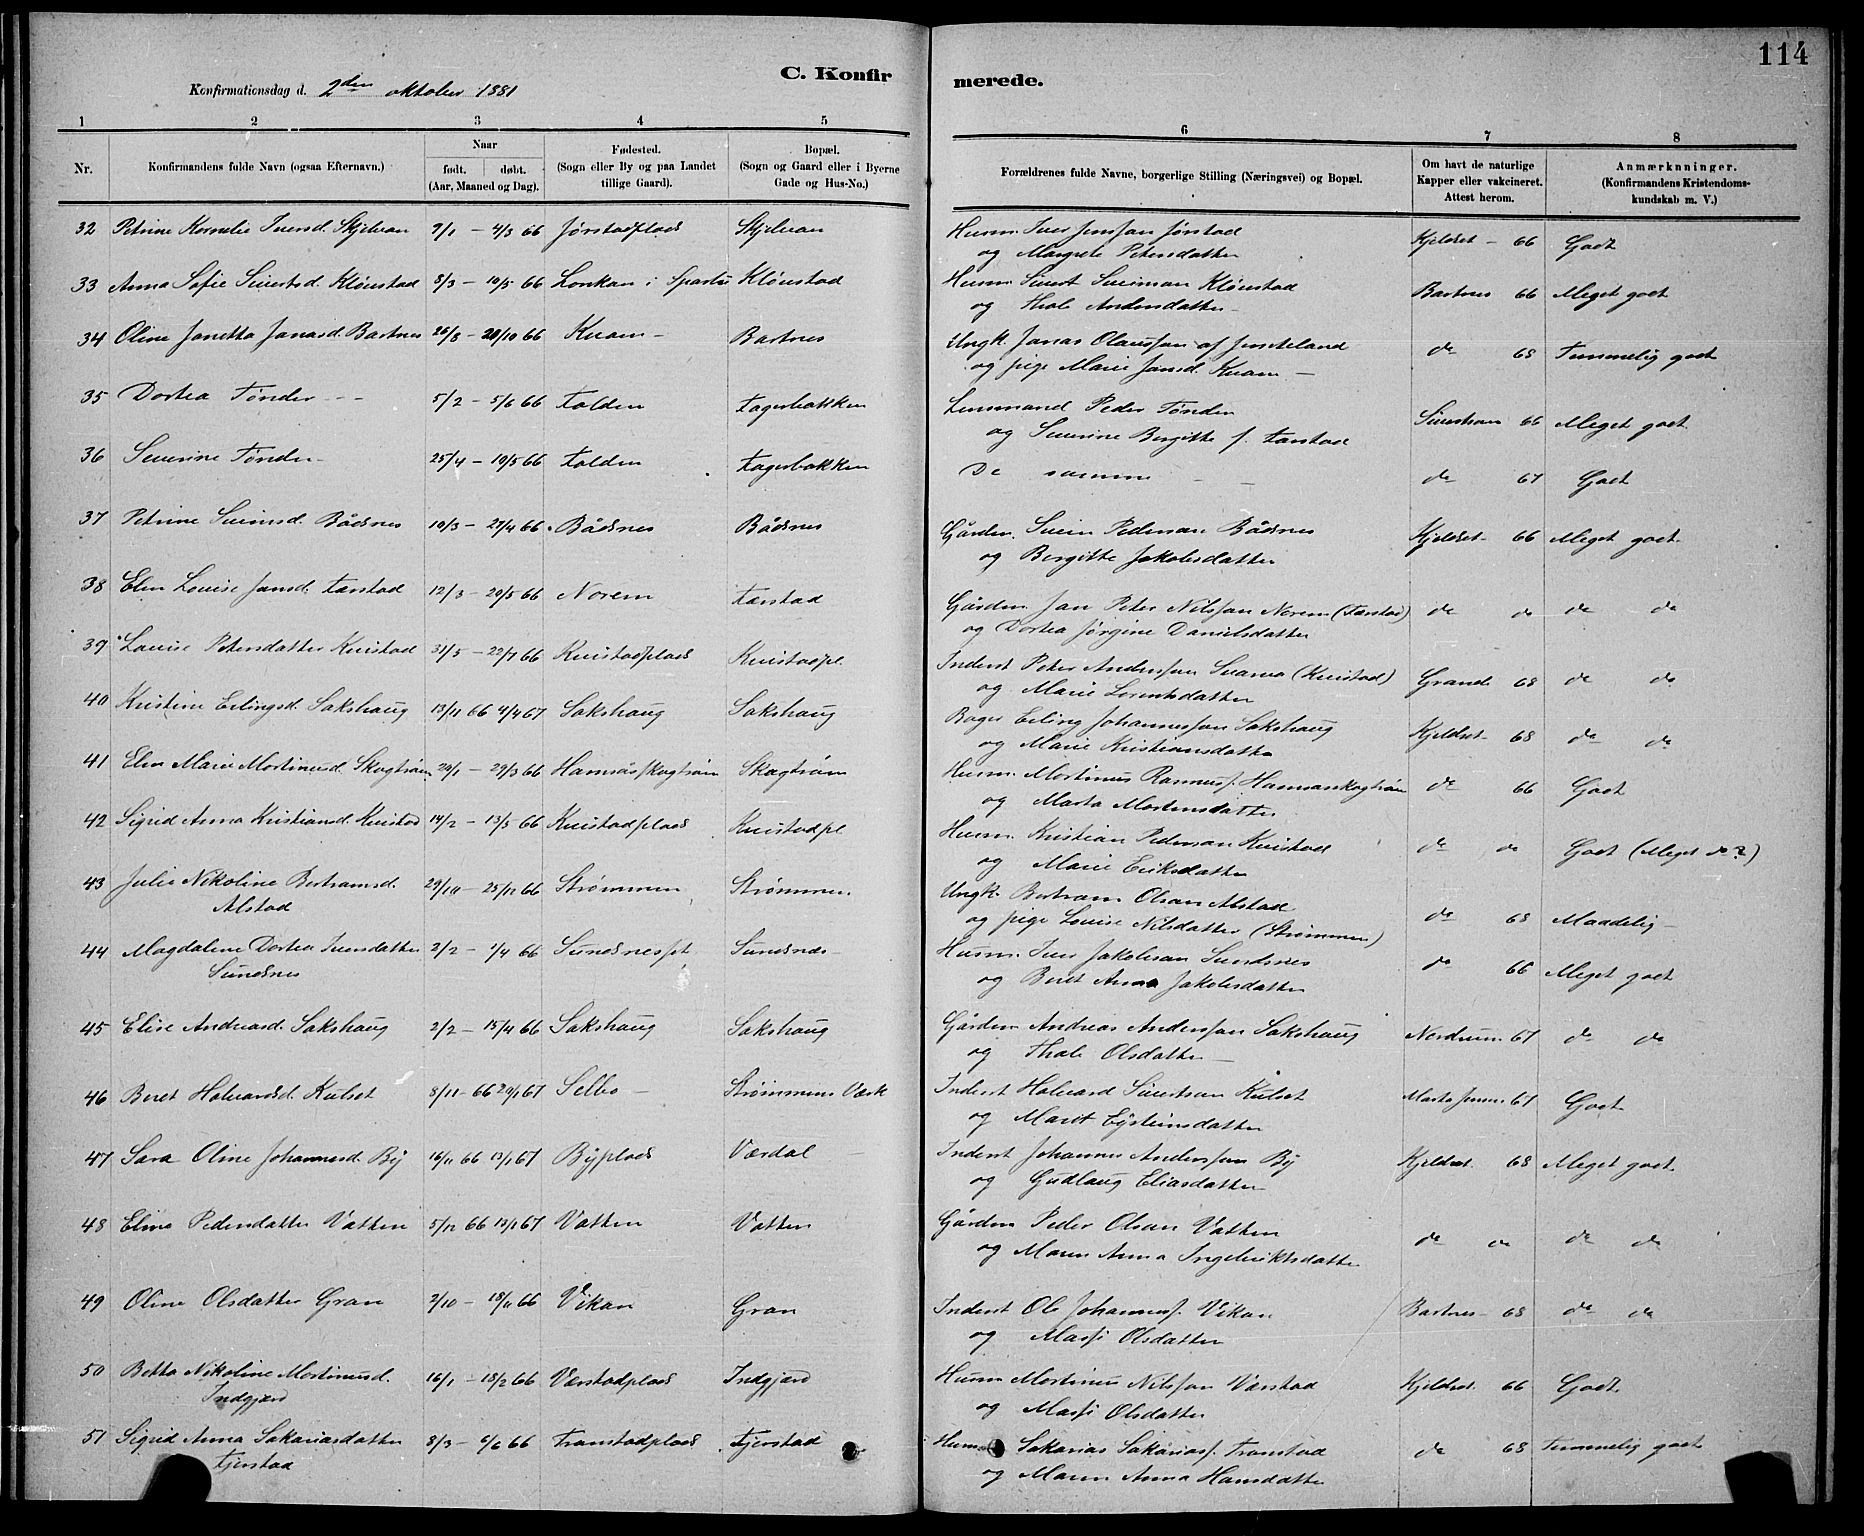 114
C. Konfirmerede.
Konfirmationsdag d. 2den oktober 1881
1 2 3 4 5 6 7 8
Nr. Konfirmandens fulde Navn (ogsaa Efternavn.) Naar født. døbt. (Aar, Maaned og Dag). Fødested. (Sogn eller By og paa Landet tillige Gaard). Bopæl. (Sogn og Gaard eller i Byerne Gade og Hus-No.) Forældrenes fulde Navne, borgerlige Stilling (Næringsvei) og Bopæl. Om havt de naturlige Kopper eller vakcineret. Attest herom. Anmærkninger. (Konfirmandens Kristendomskundskab m. V.)
32 Petrine Kornelie Iversd. Skjelvan 7/1 – 4/3 66 Jørstadplads Skjelvan Husm. Iver Jenssen Jørstad Kjeldset – 66 Godt
og Margrete Petersdatter
33 Anna Sofie Sivertsd. Kløvstad 8/3 – 10/5 66 Lonkan i Sparbu Kløvstad Husm. Sivert Kløvstad Bartnes 66 Meget godt
og Thale Andersdatter –
34 Oline Janetta Jonasd. Bartnes 26/8 – 28/10 66 Kvam – Bartnes Ungk. Jonas Olaussen af do 68 Temmelig godt
og pige Marie Jonsd. Kvam –
35 Dortea Tønder – – 5/2 – 5/6 66 Folden Fagerbakken Lensmand Peder Tønder 66 Meget godt
og Severine Bergitte f. Farstad
36 Severine Tønder – 25/4 – 10/5 66 Folden Fagerbakken De samme – – do 67 Godt
37 Petrine Sveinsd. Bådsnes 10/3 – 27/4 66 Bådsnes Bådsnes Gårdm. Svein Pedersen Bådsnes Kjeldset – 66 Meget godt
og Bergitte Jakobsdatter
38 Elen Louise Jansd. Færstad 12/3 – 20/5 66 Norem Færstad Gårdm. Jan Peter Nilssen Norem (Færstad) do do do do
og Dortea Jørgine Danielsdatter
39 Louise Petersdatter Kvistad 31/5 – 22/7 66 Kvistadplads Kvistadpl. Inderst Peter Anderssen Svarva (Kvistad) Grande 68 do do
og Marie Lorentsdatter
40 Kristine Erlingsd. Sakshaug 13/11 66 4/4 67 Sakshaug Sakshaug Bager Erling Johannessen Sakshaug Kjeldset – 68 do do
og Marie Kristiansdatter
41 Elen Marie Mortinusd. Skogtrøen 29/1 – 29/3 66 Skogtrøen Husm. Mortinus Rasmuss. do 66 Godt
og Marta Mortensdatter
42 Sigrid Anna Kristiansd. Kvistad 14/2 – 13/5 66 Kvistadplads Kvistadpl. Husm. Kristian Pedersen Kvistad do do Godt (Meget do?)
og Marie Eriksdatter
43 Julie Nikoline Bertramsd. 29/10 – 25/12 66 Strømmen Strømmen. Ungk. Bertram Olsen Alstad do 68 Maadelig –
Alstad og pige Louise Nilsdatter (Strømmen)
44 Magdalene Dortea Iversdatter 2/2 – 1/4 66 Sundsnespl. Sundsnes – Husm. Iver Jakobsen Sundsnes do 66 Meget godt
Sundsnes og Beret Anna Jakobsdatter
45 Elise Andreasd. Sakshaug 2/2 – 15/4 66 Sakshaug Sakshaug Gårdm. Andreas Anderssen Sakshaug Nordrum 67 do do
og Thale Olsdatter –
46 Beret Halvardsd. Kulset 8/11 – 66 20/1 67 Selbo – Strømmens Værk Inderst Halvard Sivertsen Kulset 67 Godt
og Marit Eysteinsdatter
47 Sara Oline Johannesd. By 16/11 66 13/1 67 Byplads Værdal – Inderst Johannes Anderssen By Kjeldset 68 Meget godt
og Gudlaug Eliasdatter
48 Elina Pedersdatter Vatten 5/12 66 13/1 67 Vatten Vatten Gårdm. Peder Olsen Vatten do do do do
og Maren Anna Ingebriktsdatter
49 Oline Olsdatter Gran 2/10 – 18/11 66 Vikan Gran Inderst Ole Johanness. Vikan Bartnes – 68 do do
og Massi Olsdatter
50 Betta Nikoline Mortinusd. 16/1 – 18/2 66 Værstadplads Indgjærd Husm. Mortinus Nilssen Værstad Kjeldset 66 Godt
Indgjærd og Massi Olsdatter
51 Sigrid Anna Sakariasdatter 8/3 – 6/6 66 Framstadplads Fjerstad Husm. Sakarias Sakariass. Framstad do 68 Temmelig godt
Fjerstad og Maren Anna Hansdatter